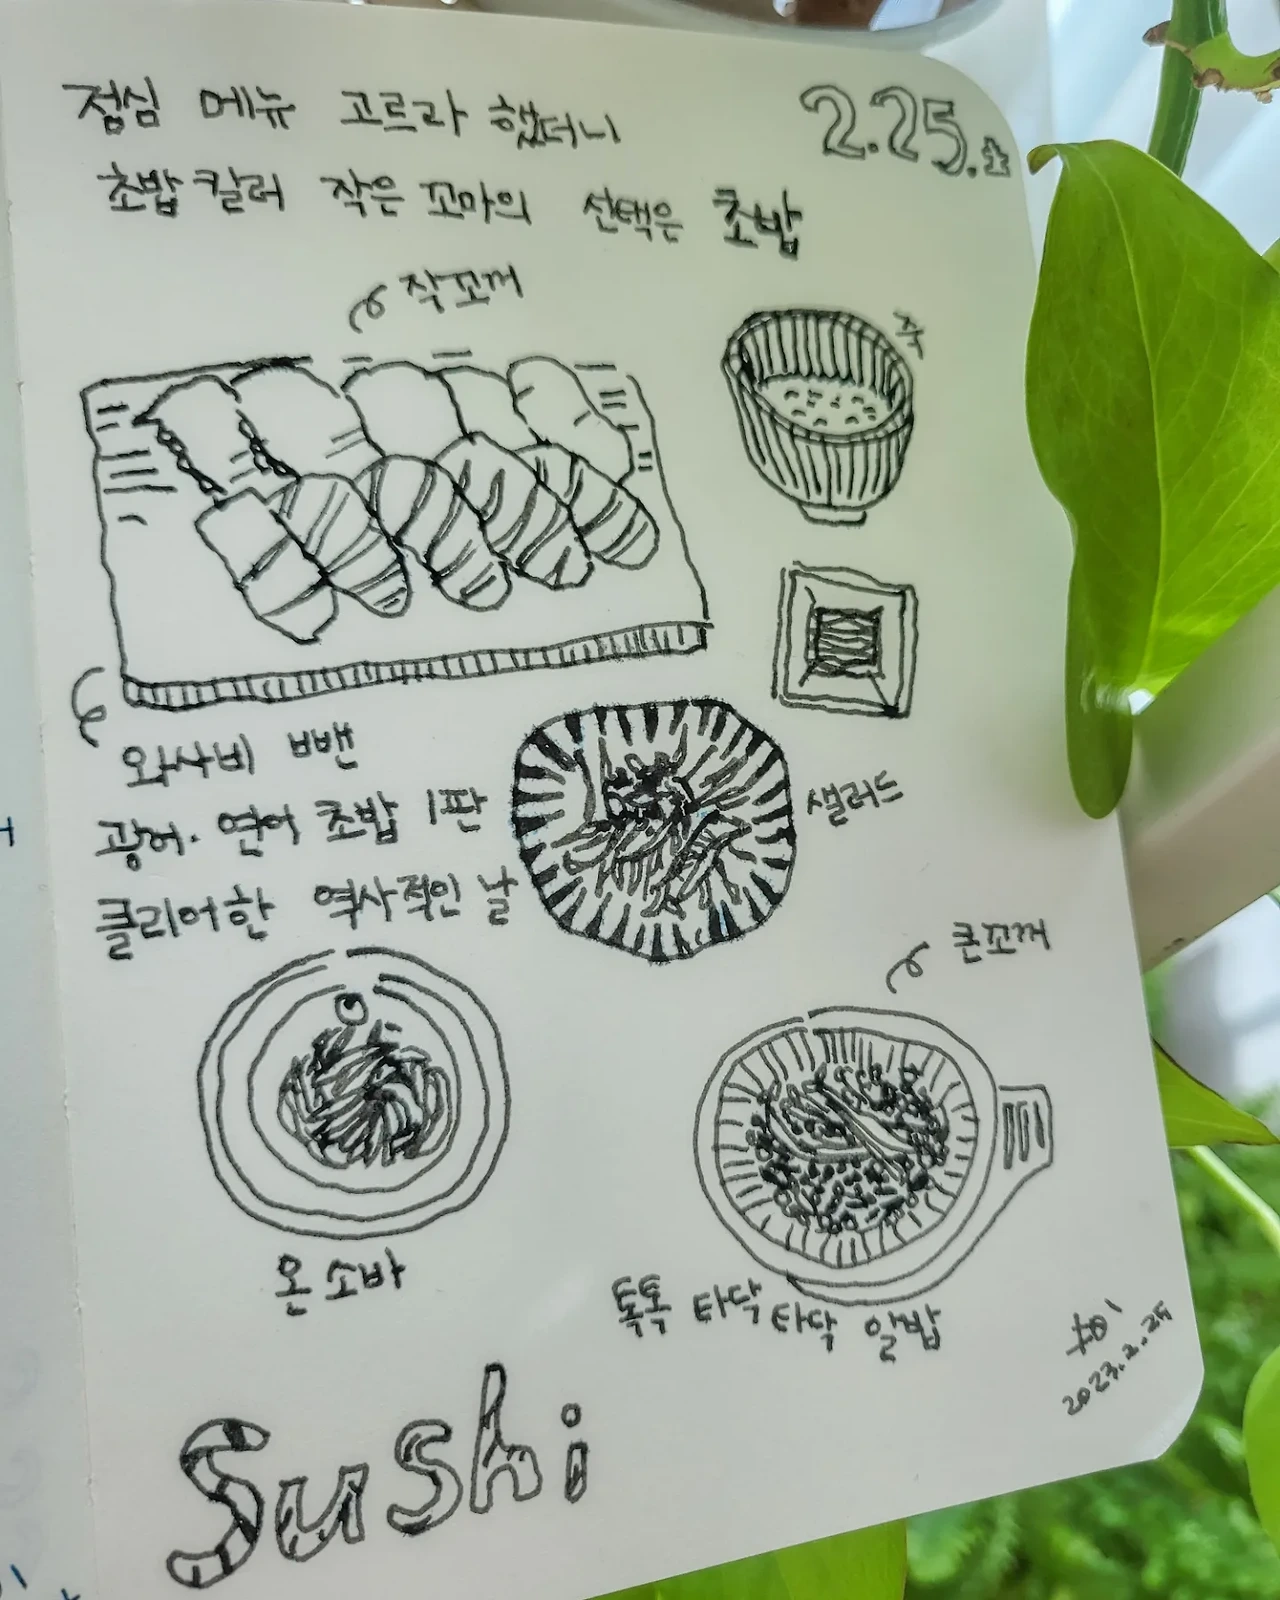 점심 메뉴 고르라 했더니
2.25.토
초밥킬러 작은 꼬마의 선택은 초밥
작꼬꺼
죽
와사비 뺀
광어·연어 초밥 1판
클리어한 역사적인 날
샐러드
큰꼬꺼
온소바
톡톡 타닥 타닥 알밥
2023.2.25
Sushi